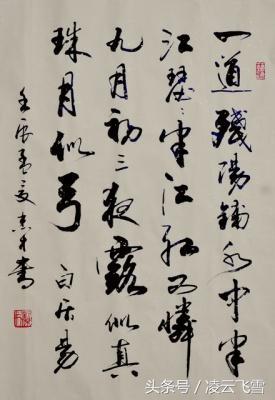 一道殘陽鋪水中半
江瑟〻半江紅可憐
九月初三夜露似真
珠月似弓 白居易
壬辰孟夏書
头条号 / 凌云飞雪